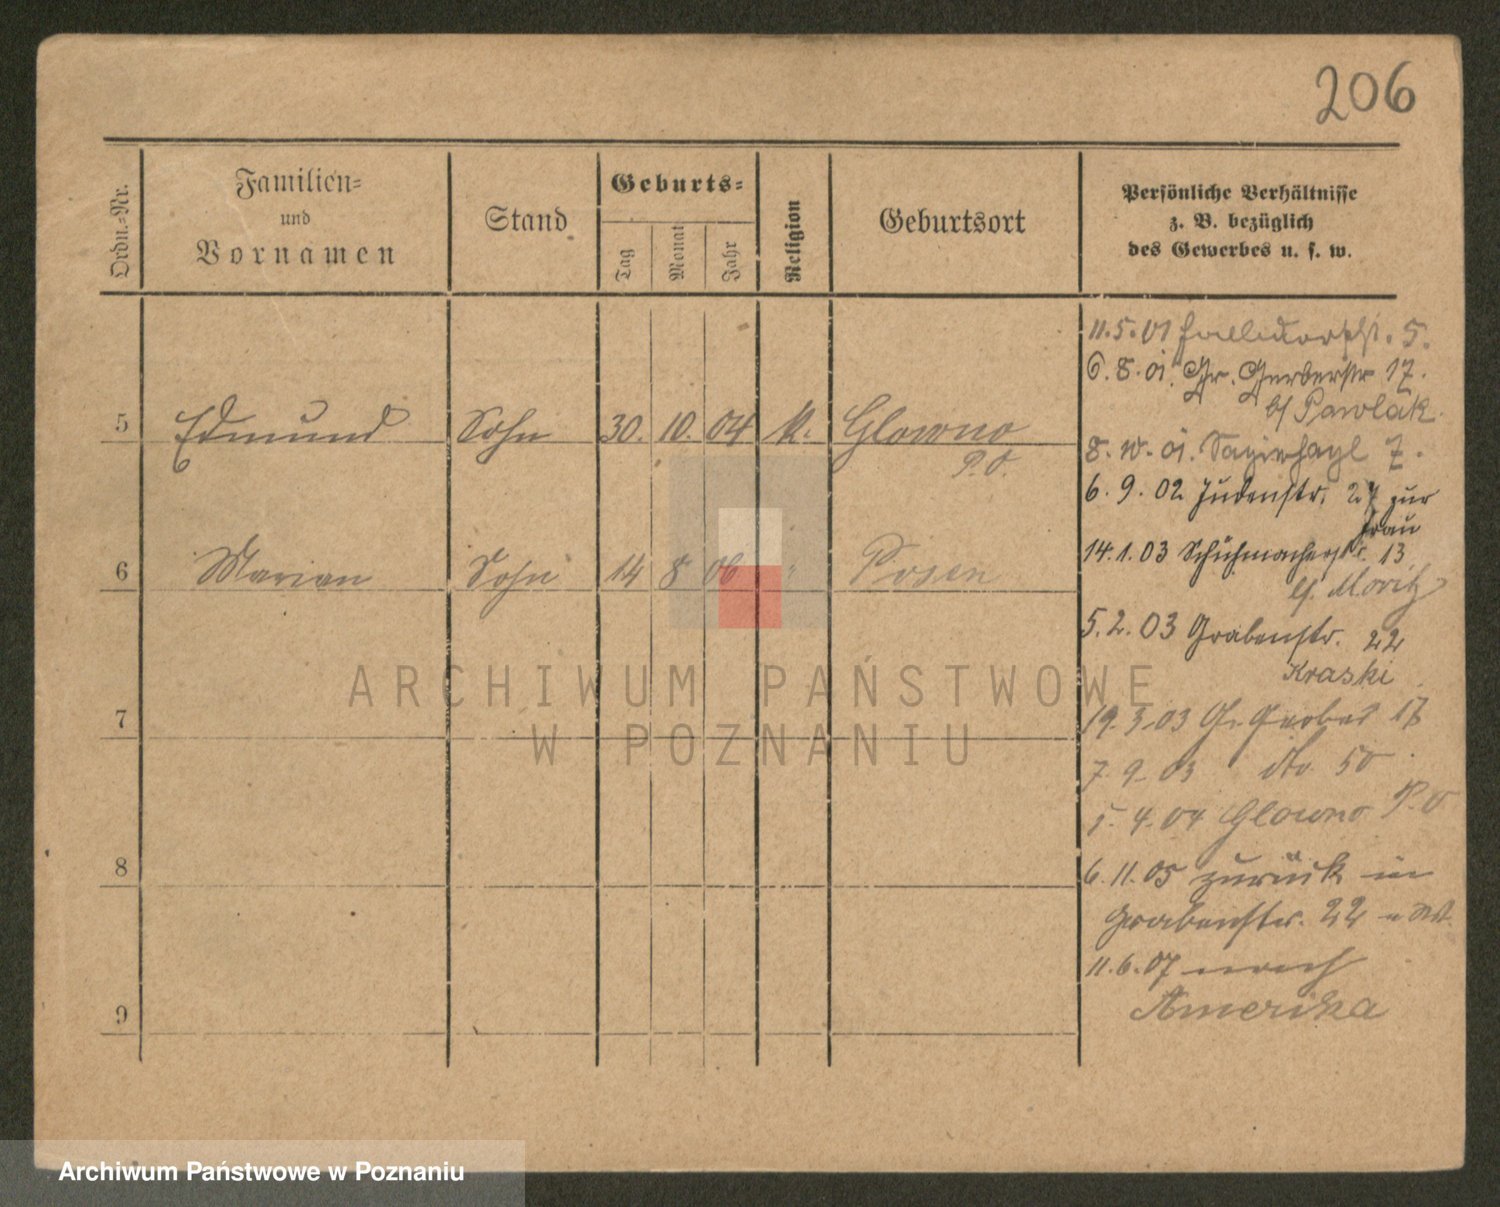 206
Ordn.-Nr.
Familien-
und
Vornamen
Stand
Geburts-
Tag
Monat
Jahr
Religion
Geburtsort
Persönliche Verhältnisse
z. B. bezüglich
des Gewerbes u. s. w.
5 Edmund Sohn 30. 10. 04 k. Glowno
P. O.
6 Marian Sohn 14 8 06 " Posen
7
8
9
11.5.01 5.
6.8.01. Gr. Gerberstr 17.
b/ Pawlak.
8. 01. 7.
6.9.02 Judenstr. 27 zur
Frau
14.1.03 Schuhmacherstr. 13
b/. Moritz
5.2.03 Grabenstr. 22
Kraski
19.3.03 Gr. Gerber 17
7.9.03 dto. 50
1.4.04 Glowno P. O
6.11.05 zurück in
Grabenstr. 22
11.6.07 nach
Amerika
ARCHIWUM PAŃSTWOWE
W POZNANIU
Archiwum Państwowe w Poznaniu